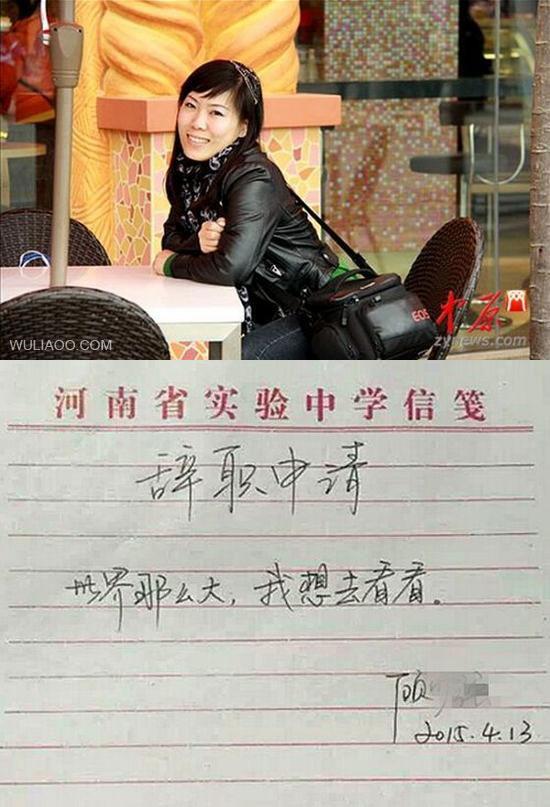 EOS
WULIAOO.COM
中原
zynews.com
河南省实验中学信笺
辞职申请
世界那么大，我想去看看。
顾
2015.4.13